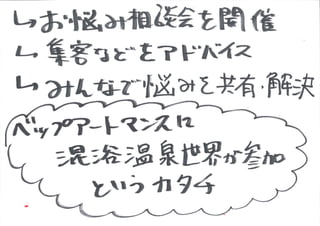 ↳お悩み相談会を開催
↳集客などをアドバイス
↳みんなで悩みを共有・解決
ベップアートマンスに
混浴温泉世界が参加
というカタチ